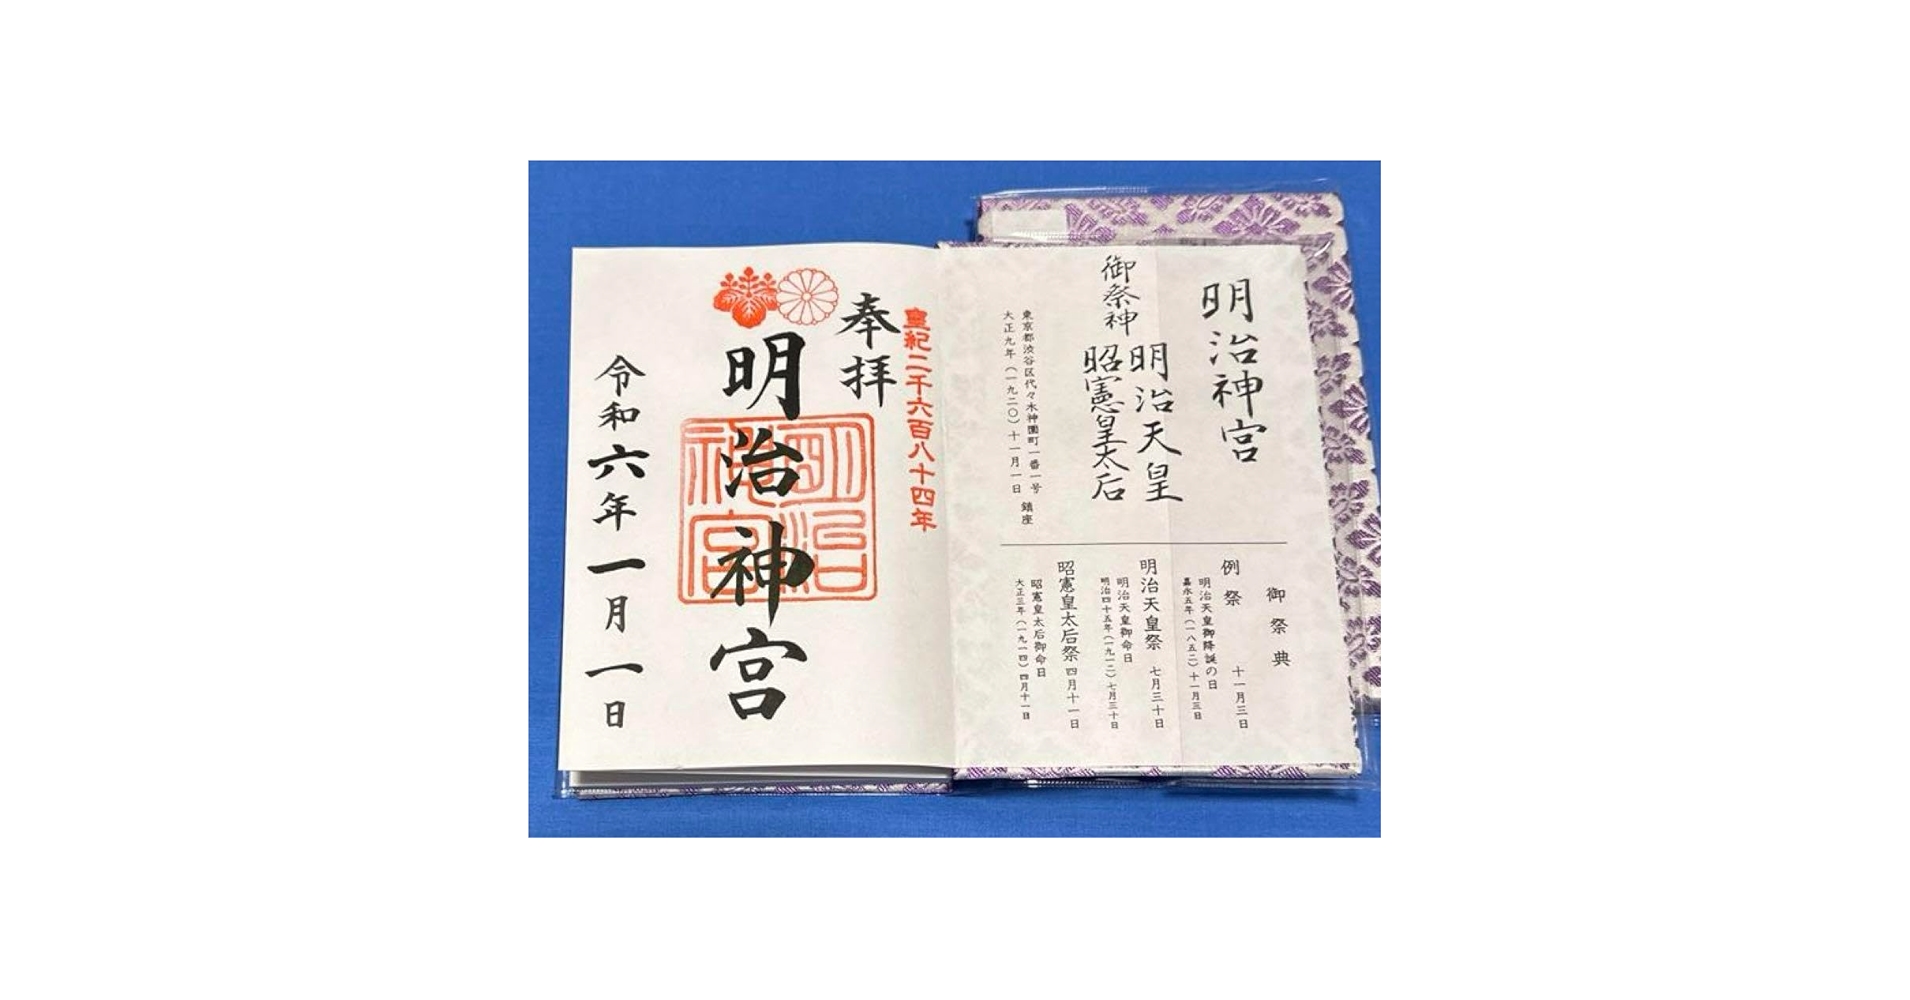 明治神宮
御祭神
明治天皇
昭憲皇太后
東京都渋谷区代々木神園町一番一号
大正九年(一九二〇)十一月一日 鎮座
御祭典
例祭 十一月三日
明治天皇御降誕の日
嘉永五年(一八五二)十一月三日
明治天皇祭 七月三十日
明治天皇御命日
明治四十五年(一九一二)七月三十日
昭憲皇太后祭 四月十一日
昭憲皇太后御命日
大正三年(一九一四)四月十一日
皇紀二千六百八十四年
奉拝
明治神宮
明治神宮
令和六年一月一日